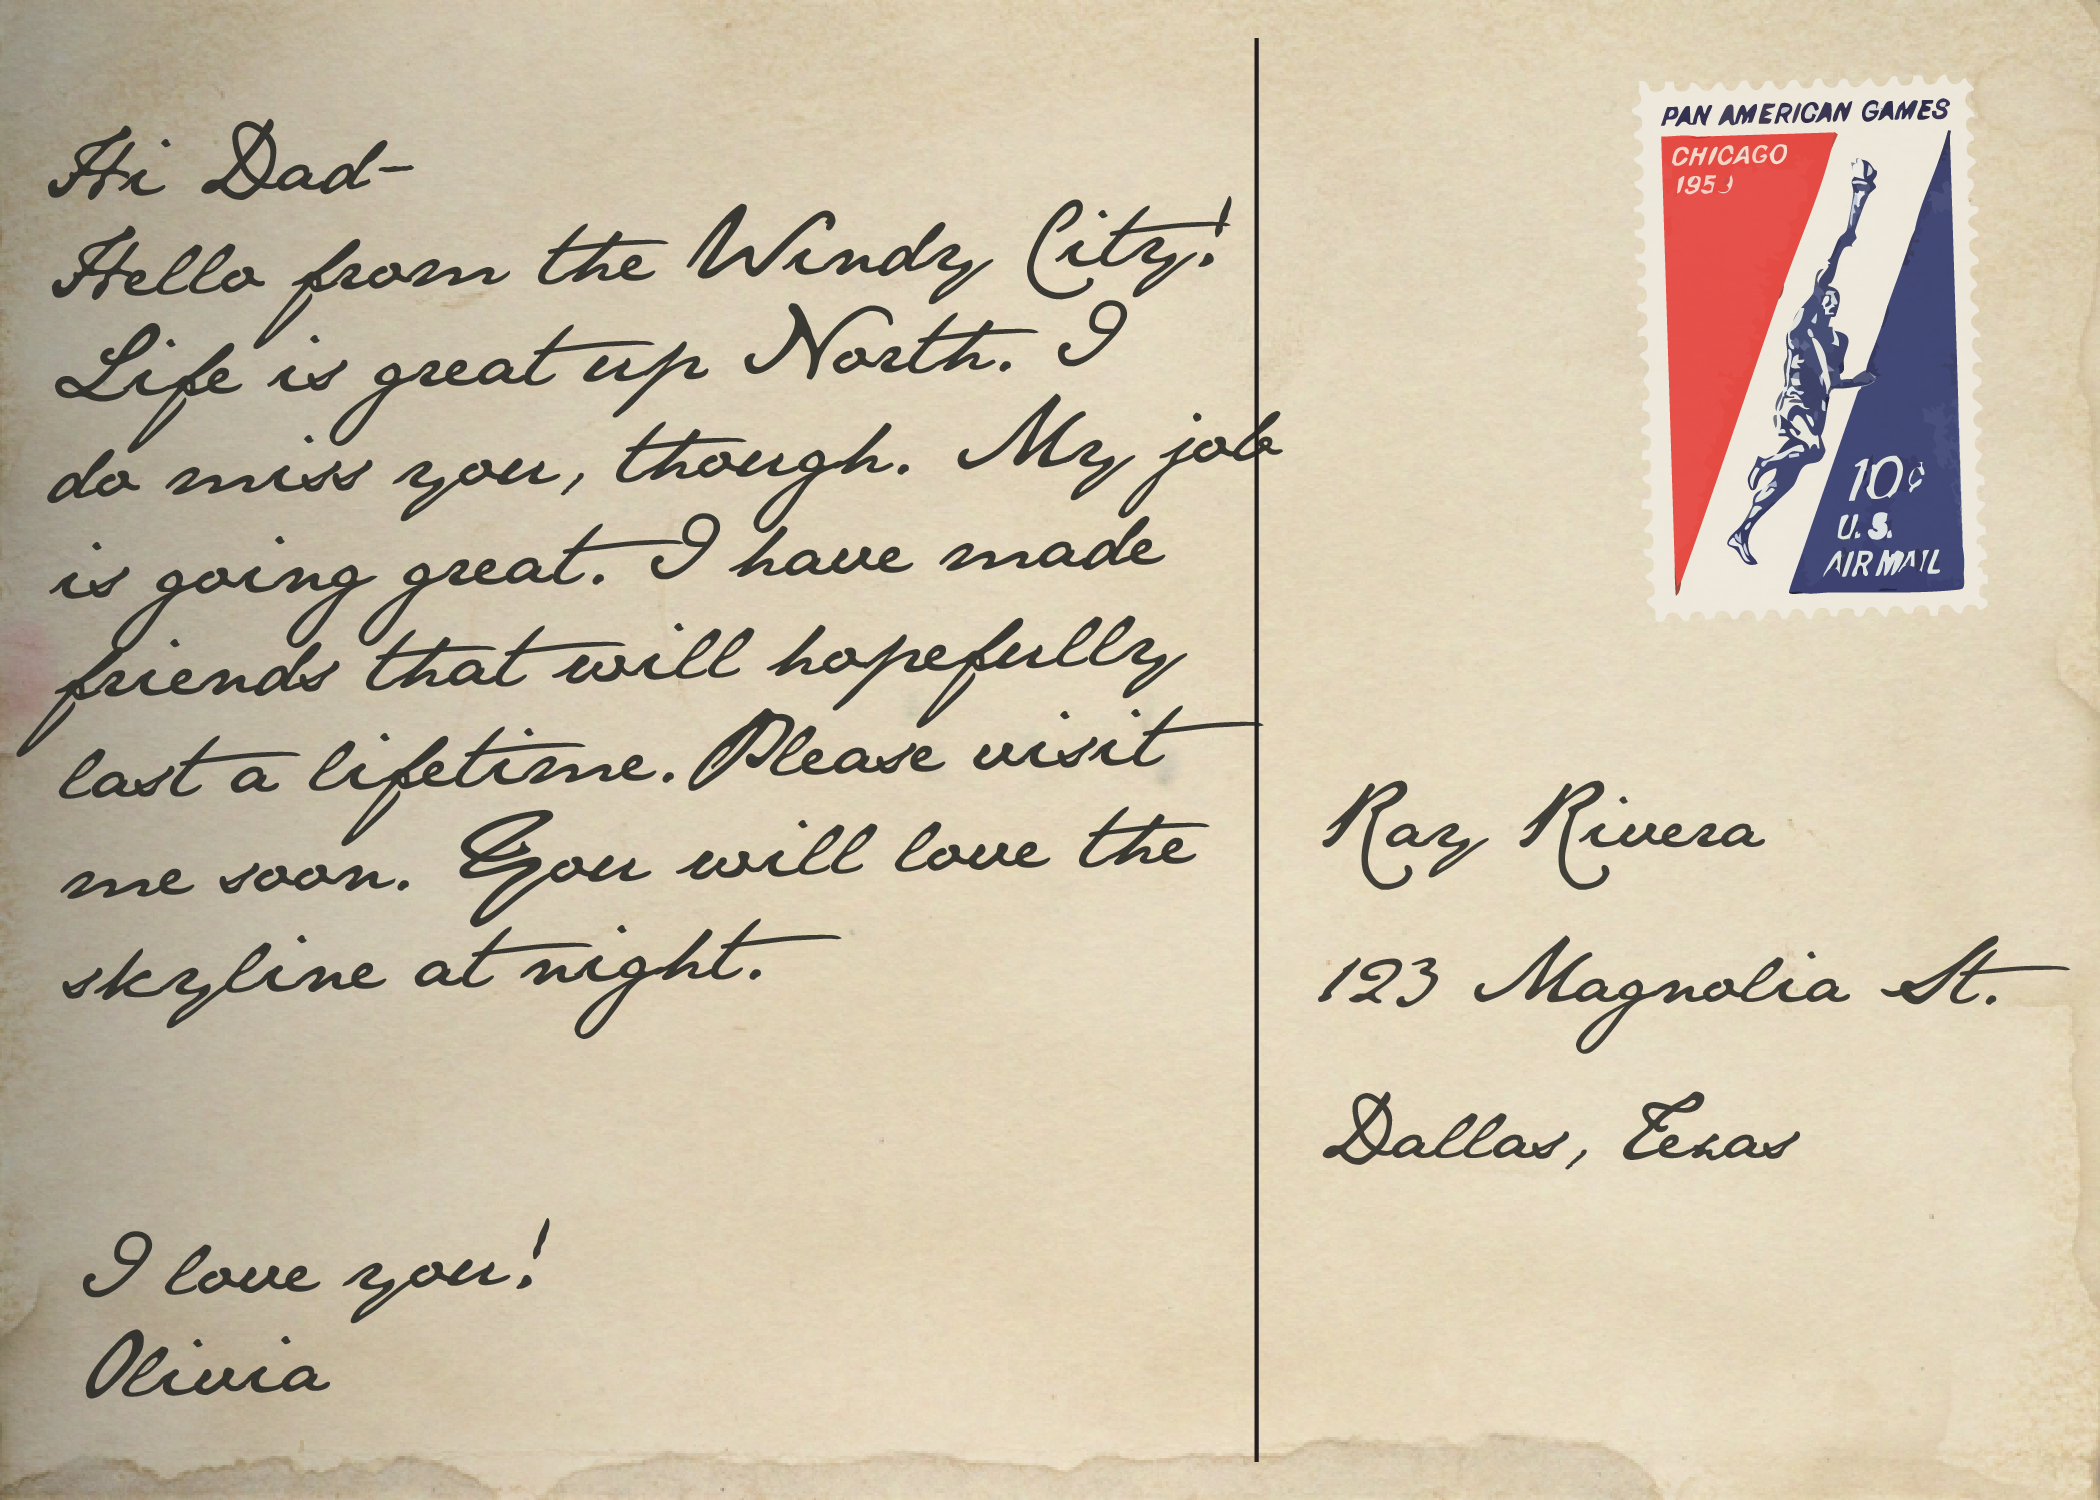 Hi Dad-
Hello from the Windy City!
Life is great up North. I
do miss you, though. My job
is going great. I have made
friends that will hopefully
last a lifetime. Please visit
me soon. You will love the
skyline at night.
I love you!
Olivia
PAN AMERICAN GAMES
CHICAGO
10¢
U.S.
AIR MAIL
Ray Rivera
123 Magnolia St.
Dallas, Texas